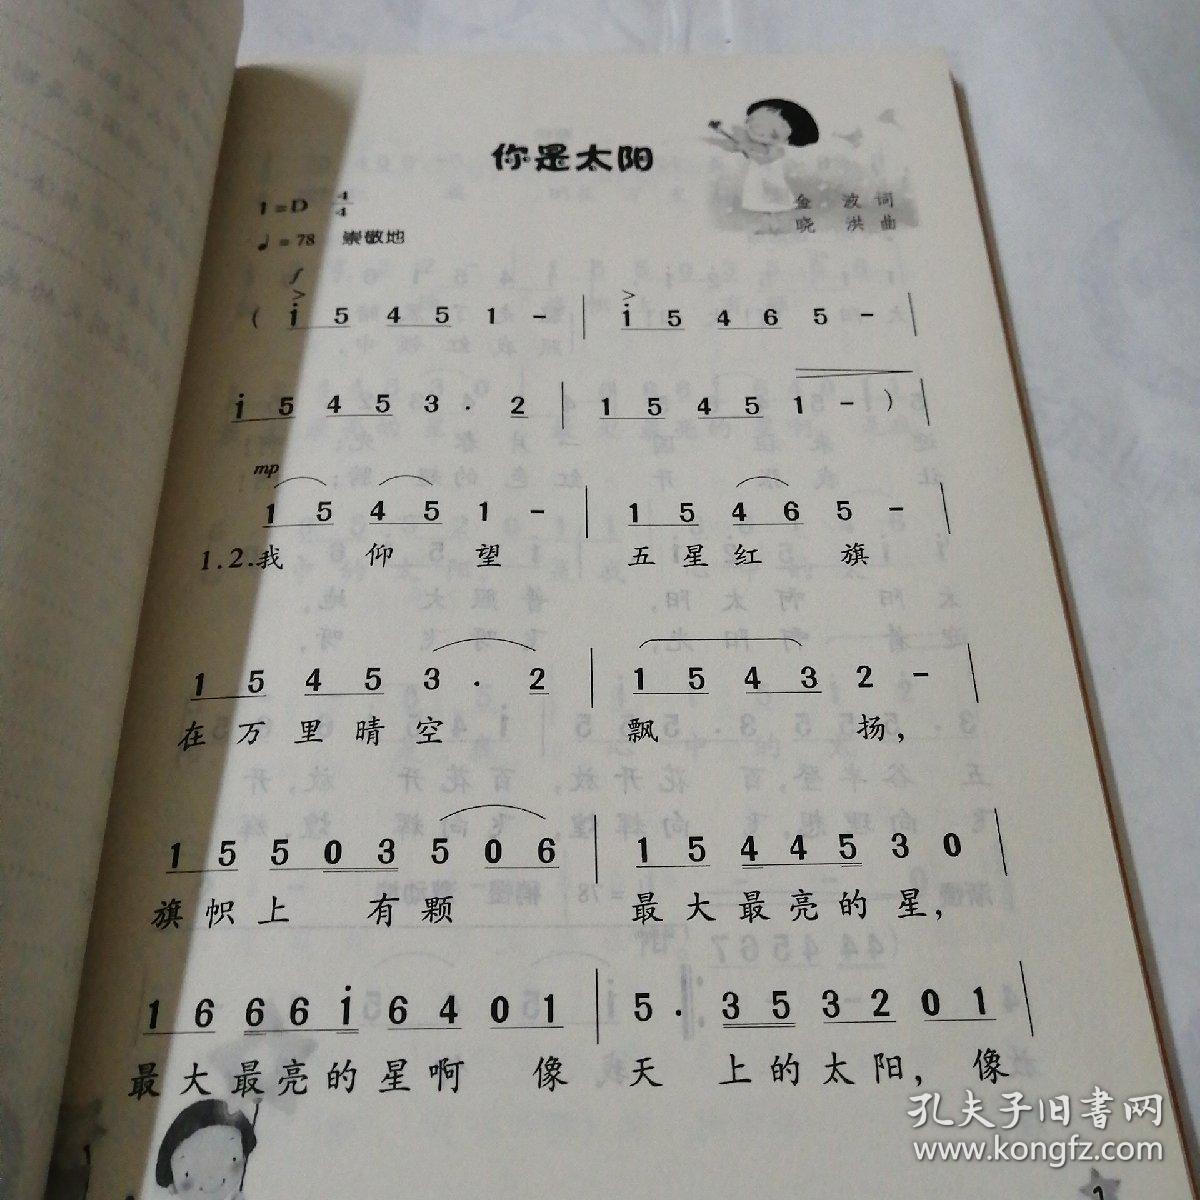 你是太阳
1=D 4/4
金 波 词
♩=78 崇敬地
晓 洪 曲
f
( i 5 4 5 1 - | i 5 4 6 5 - |
i 5 4 5 3 . 2 | 1 5 4 5 1 - ) |
mp
1 5 4 5 1 - | 1 5 4 6 5 - |
1.2.我 仰 望 五 星 红 旗
1 5 4 5 3 . 2 | 1 5 4 3 2 - |
在 万 里 晴 空 飘 扬，
1 5 5 0 3 5 0 6 | 1 5 4 4 5 3 0 |
旗 帜 上 有 颗 最 大 最 亮 的 星，
1 6 6 6 i 6 4 0 1 | 5 . 3 5 3 2 0 1 |
最 大 最 亮 的 星 啊 像 天 上 的 太 阳， 像
孔夫子旧书网
www.kongfz.com